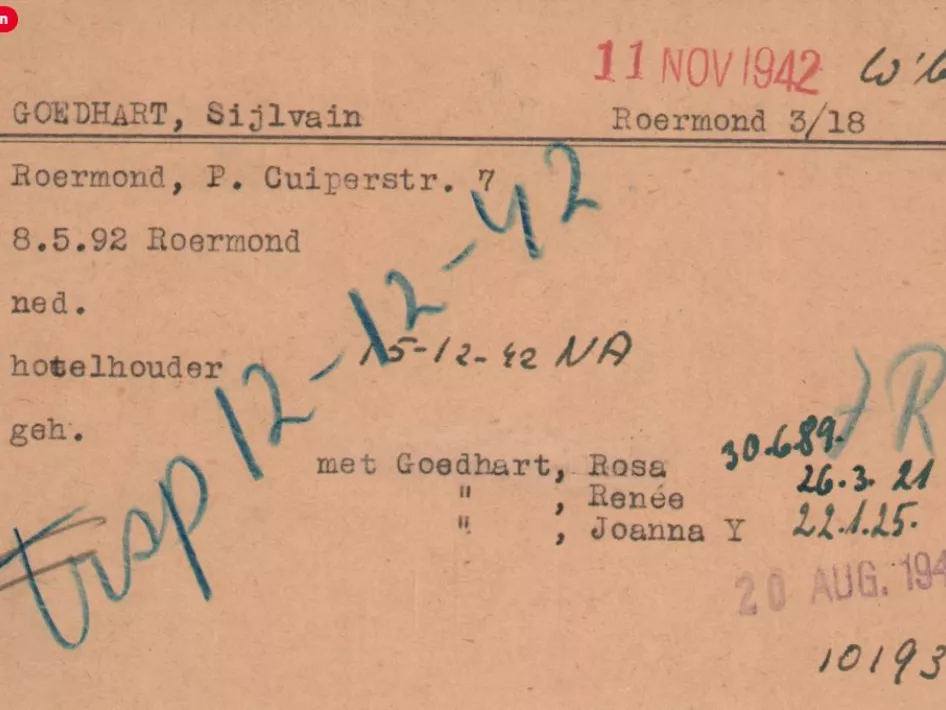 n
11 NOV 1942
GOEDHART, Sijlvain Roermond 3/18
Roermond, P. Cuiperstr. 7
8.5.92 Roermond
ned.
hotelhouder
geh.
trsp 12-12-42
15-12-42 NA
R
met Goedhart, Rosa 30.6.89.
" , Renée 26.3.21
" , Joanna Y 22.1.25.
20 AUG. 194
10193